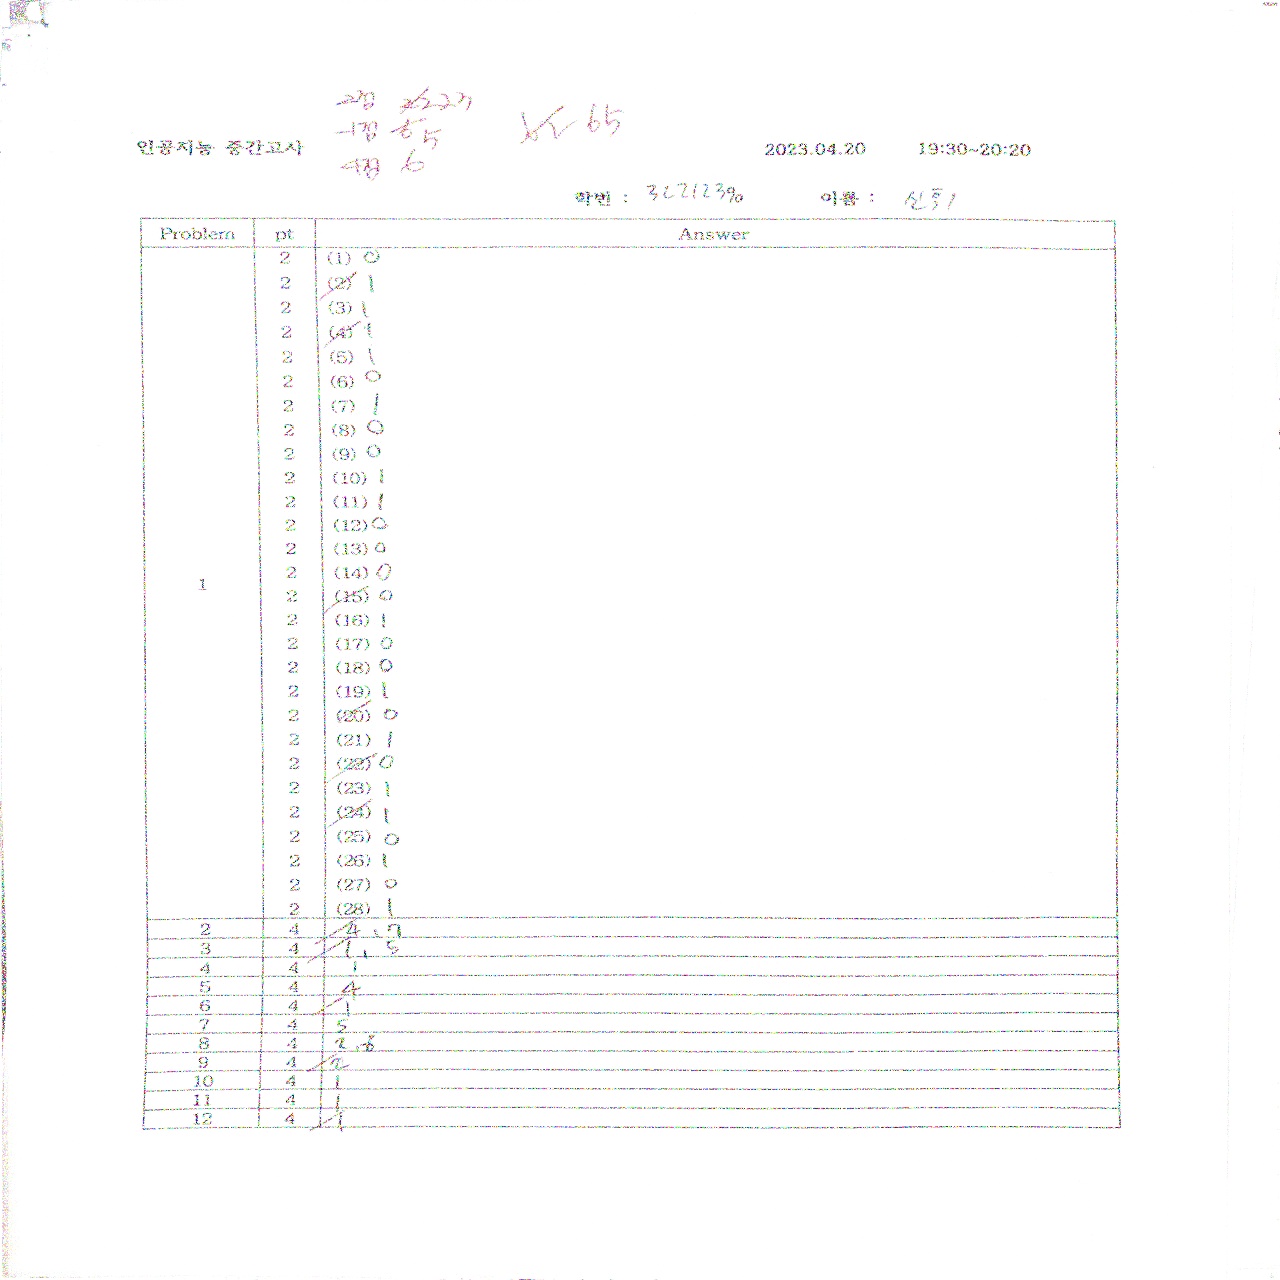 2점 227
-1점 5
65
인공지능 중간고사
2023.04.20 19:30~20:20
-4점 6
학번 : 이름 :
Problem pt Answer
1
2 (1) 0
2 (2) 1
2 (3) 1
2 (4) 1
2 (5) 1
2 (6) 0
2 (7) 1
2 (8) 0
2 (9) 0
2 (10) 1
2 (11) 1
2 (12) 0
2 (13) 0
2 (14) 0
2 (15) 0
2 (16) 1
2 (17) 0
2 (18) 0
2 (19) 1
2 (20) 0
2 (21) 1
2 (22) 0
2 (23) 1
2 (24) 1
2 (25) 0
2 (26) 1
2 (27) 0
2 (28) 1
2 4 4, 7
3 4 1, 5
4 4 1
5 4 4
6 4 1
7 4 5
8 4 2, 6
9 4 2
10 4 1
11 4 1
12 4 1